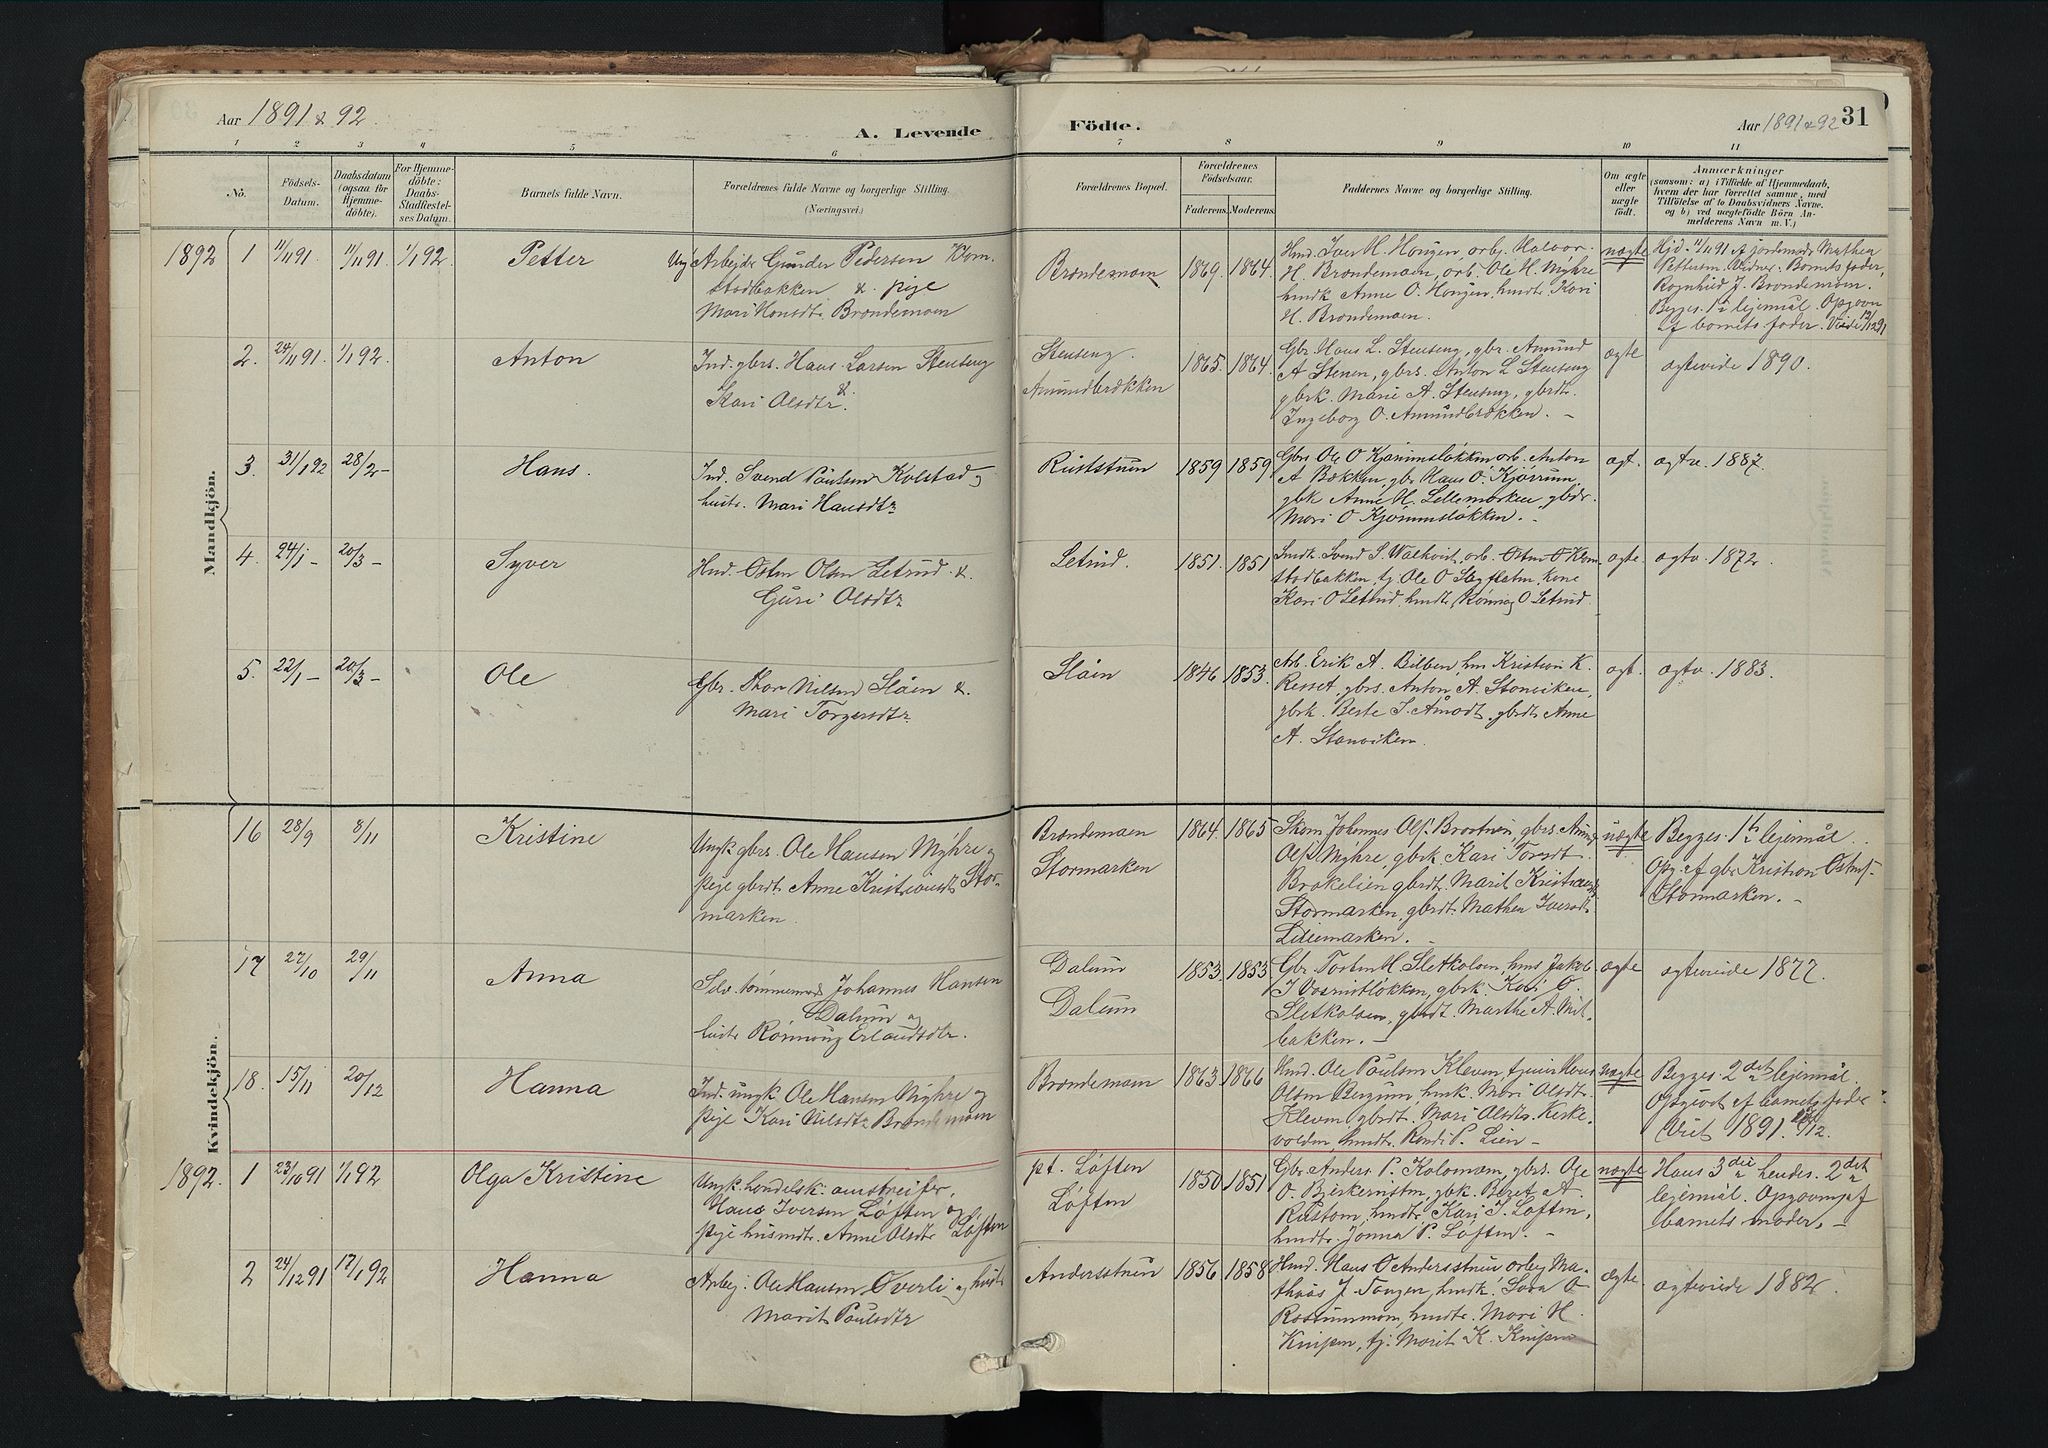 Aar 1891 & 92.
A. Levende Födte.
Aar 1891 & 92
31
1 2 3 4 5 6 7 8 9 10 11
No.
Födsels-Datum.
Daabsdatum (ogsaa for Hjemmedöbte).
For Hjemmedöbte: Daabs-Stadfæstelses Datum.
Barnets fulde Navn.
Forældrenes fulde Navne og borgerlige Stilling.
(Næringsvei.)
Forældrenes Bopæl.
Forældrenes Födselsaar.
Faderens. Moderens.
Faddernes Navne og borgerlige Stilling.
Om ægte eller uægte födt.
Anmærkninger
(saasom: a) i Tilfælde af Hjemmedaab,
hvem der har forrettet samme, med
Tilföielse af to Daabsvidners Navne.
og b) ved uægtefödte Börn Anmelderens Navn m. V.)
Mandkjön.
1892 1 11/11 91. 11/11 91 1/1 92. Petter
Ug Arbejdr Gunder Pedersen Klomstadbakken & pige
Mari Hansdtr. Brændemoen
Brændemoen 1869 1864.
Hmd. Iver H. Haugen, arb. Halvor
H. Brændemoen, arb. Ole H. Myhre
hmdk Anne O. Haugen, hmdtr. Kari
H. Brændemoen.
uægte
Hjd. 11/11 91 af jordemodr Mathea
Pettersen. Vidner: Barnets fader,
Ragnhild J. Brændemoen.
Begges 1ste lejermål. Opgivn
af barnets fader. Viede 12/12 91
2. 24/11 91. 1/1 92. Anton
Ind. gbrs. Hans Larsen Stenseng
&
Kari Olsdtr.
Stenseng.
Amundbrækken
1865. 1864.
Gbr. Hans L. Stenseng, gbr. Amund
A Stenen, gbrs. Anton L Stenseng
gbrk. Marie A. Stenseng, gbrdt.
Ingeborg O. Amundbrækken. -
ægte ægteviede 1890.
3. 31/1 92 28/2 - Hans.
Ind. Svend Paulsen Kolstad og
hustr. Mari Hansdtr
Ruststuen 1859 1859
Gbrs Ole O Kjønnsløkken arb. Anton
A Bakken, gbr Hans O. Kjørum,
gbk Anne H. Lillemarken, gbdr.
Mari O Kjønnsløkken. -
ægt. ægtv. 1887.
4. 24/1 - 20/3 - Syver
Hmd. Østen Olsen Letrud &
Guri Olsdtr
Letrud. 1851. 1851
Smdk. Svend S. Walkvist, arb. Østen O Klomstadbakken, tj. Ole O Slethølen, kone
Kari O Letrud, hmdtr. Rønnaug O Letrud.
ægte. ægtv. 1872.
5. 22/1 - 20/3 - Ole
Gbr. Thor Nilsen Slåen &
Mari Torgersdtr
Slåen 1846 1853.
Arb. Erik A. Bilben, hm Kristian K.
Resset, gbrs. Anton A. Stanviken,
gbrk. Beste J. Åmodt, gbrdtr Anne
A. Stanviken.
ægt. ægtv. 1883.
Kvindekjön.
16 28/9 8/11 Kristine
Ungk gbrs. Ole Hansen Myhre og
pige gbrdt. Anne Kristiansdtr Stormarken.
Brændemoen
Stormarken
1864. 1865
Skom. Johannes Ols. Braatuen, gbrs. Amund
Ols. Myhre, gbrk Kari Torsdt.
Brakelien, gbrdt. Marit Kristiansdt
Stormarken, gbrdt. Mathea Iversdt.
Lillemarken. -
uægte
Begges 1ste lejermål.
Opg. af gbr. Kristian Østens.
Stormarken. -
17 27/10 29/11 Anna
Selv. tømmermd Johannes Hansen
Dalum og
hustr Rønnaug Erlandsdtr.
Dalum
Dalum
1853. 1853
Gbr. Torsten H. Sletkolsen, hms Jakob
J Vasrustløkken, gbrk. Kari O.
Sletkolsen, gbrdt. Marthe A. Mitbakken. -
ægte ægteviede 1877.
18. 15/11 20/12 Hanna
Ind. ungk. Ole Hansen Myhre og
pige Kari Nilsdtr Brændemoen
Brændemoen 1863 1866
Hmd. Ole Paulsen Kleven tjener Hans
Olsen Bergum, hmk. Mari Olsdt.
Kleven, gbrdt. Mari Olsdtr. Kirkevolden hmdtr. Randi P. Lien -
uægte
Begges 2det lejermål.
Opgivet af barnets fader.
Viet 1891 /12.
1892. 1 23/10 91 1/1 92 Olga Kristine
Ungk. handelsk. omstreifer,
Hans Iversen Løften og
pige husmdtr. Anne Olsdtr Løften
pt. Løften
Løften
1850 1851
Gbr. Anders P. Kolomoen, gbrs. Ole
O. Bjerkenisten, gbk. Beret A.
Rustom, hmdtr. Kari I. Løften,
hmdtr. Jonna P. Løften. -
uægte
Hans 3die hendes 2det
lejermål. Opgivn af
barnets moder. -
2 24/12 91 17/1 92 Hanna
Arbej. Ole Hansen Øverli og hustr
Marit Paulsdtr
Andersstuen 1856 1858
Hmd. Hans O Andersstuen arbej Mathias J. Tangen, hmdk. Sara O
Rostummoen, hmdtr. Mari H.
Knipen, tj. Marit K. Knipen
ægte. ægteviede 1882.